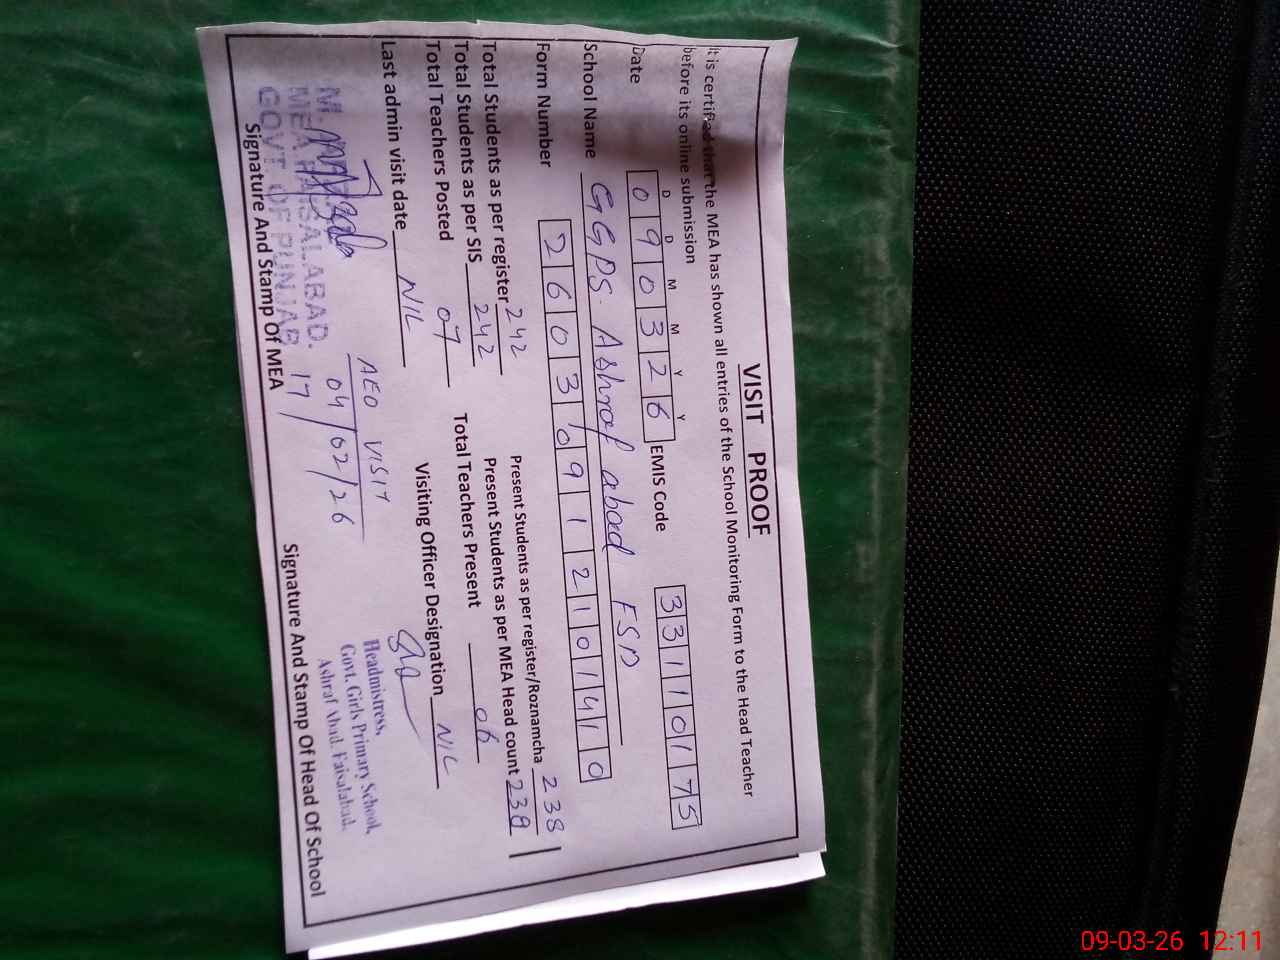 VISIT PROOF
It is certified that the MEA has shown all entries of the School Monitoring Form to the Head Teacher
before its online submission
D D M M Y Y
Date 090326 EMIS Code 33110175
School Name GGPS. Ashraf abad FSD
Form Number 2603091210141 0
Total Students as per register 242 Present Students as per register/Roznamcha 238
Total Students as per SIS 242 Present Students as per MEA Head count 238
Total Teachers Posted 07 Total Teachers Present 06
Last admin visit date NIL Visiting Officer Designation NIL
AEO VISIT
04/02/26
17/
MEA FAISALABAD.
GOVT. OF PUNJAB
Headmistress,
Govt. Girls Primary School,
Ashraf Abad, Faisalabad.
Signature And Stamp Of MEA Signature And Stamp Of Head Of School
09-03-26 12:11